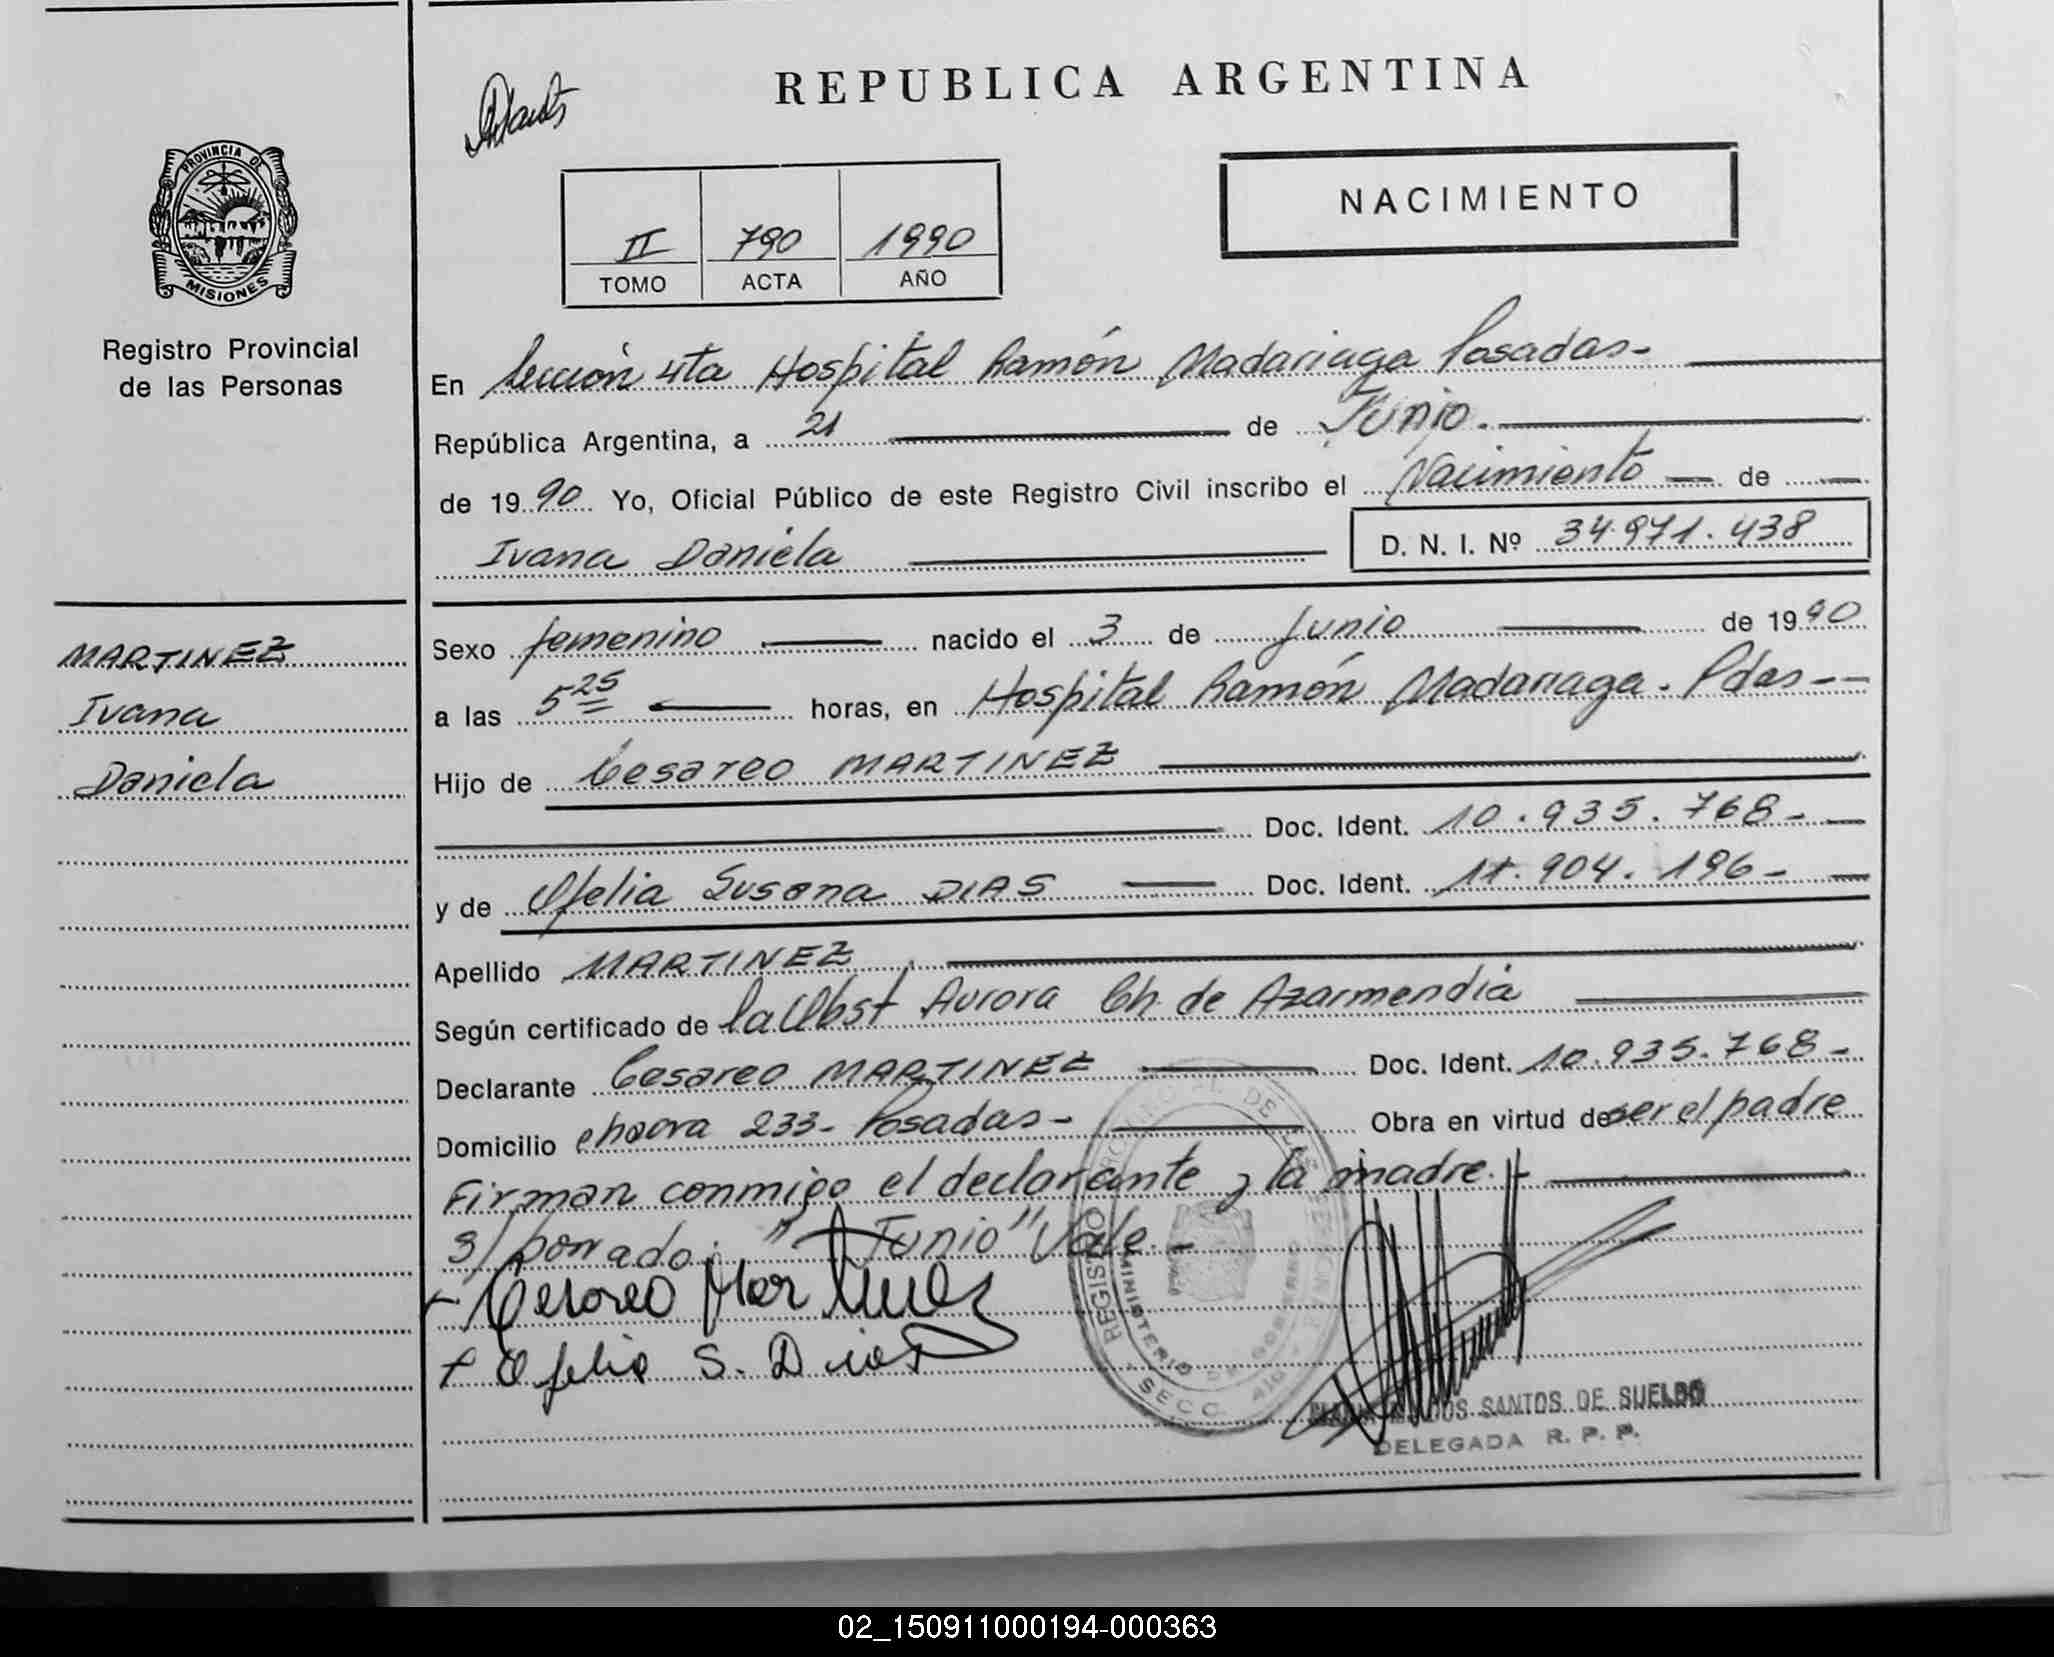 REPUBLICA ARGENTINA
PROVINCIA DE
MISIONES
Registro Provincial
de las Personas
NACIMIENTO
II 790 1990
TOMO ACTA AÑO
En Sección 4ta Hospital Ramón Madariaga Posadas-
República Argentina, a 21 de Junio.
de 1990 Yo, Oficial Público de este Registro Civil inscribo el Nacimiento de
Ivana Daniela D. N. I. Nº 34.971.438
MARTINEZ
Ivana
Daniela
Sexo femenino nacido el 3 de Junio de 1990
a las 5 25 horas, en Hospital Ramón Madariaga. Pdas--
Hijo de Cesareo MARTINEZ
Doc. Ident. 10.935.768-
y de Ofelia Susana DIAS Doc. Ident. 904.196-
Apellido MARTINEZ
Según certificado de la Obst Aurora Ch. de Azarmendia
Declarante Cesareo MARTINEZ Doc. Ident. 10.935.768-
Domicilio chacra 233- Posadas- Obra en virtud de ser el padre
Firman conmigo el declarante y la madre.-
S/borrado: "Junio" Vale.-
Cesareo Martinez
Ofelia S. Dias
REGISTRO DE LAS PERSONAS
MINISTERIO DE GOBIERNO
SECC. 4ta
DOS SANTOS DE SUELDO
DELEGADA R. P. P.
02_150911000194-000363